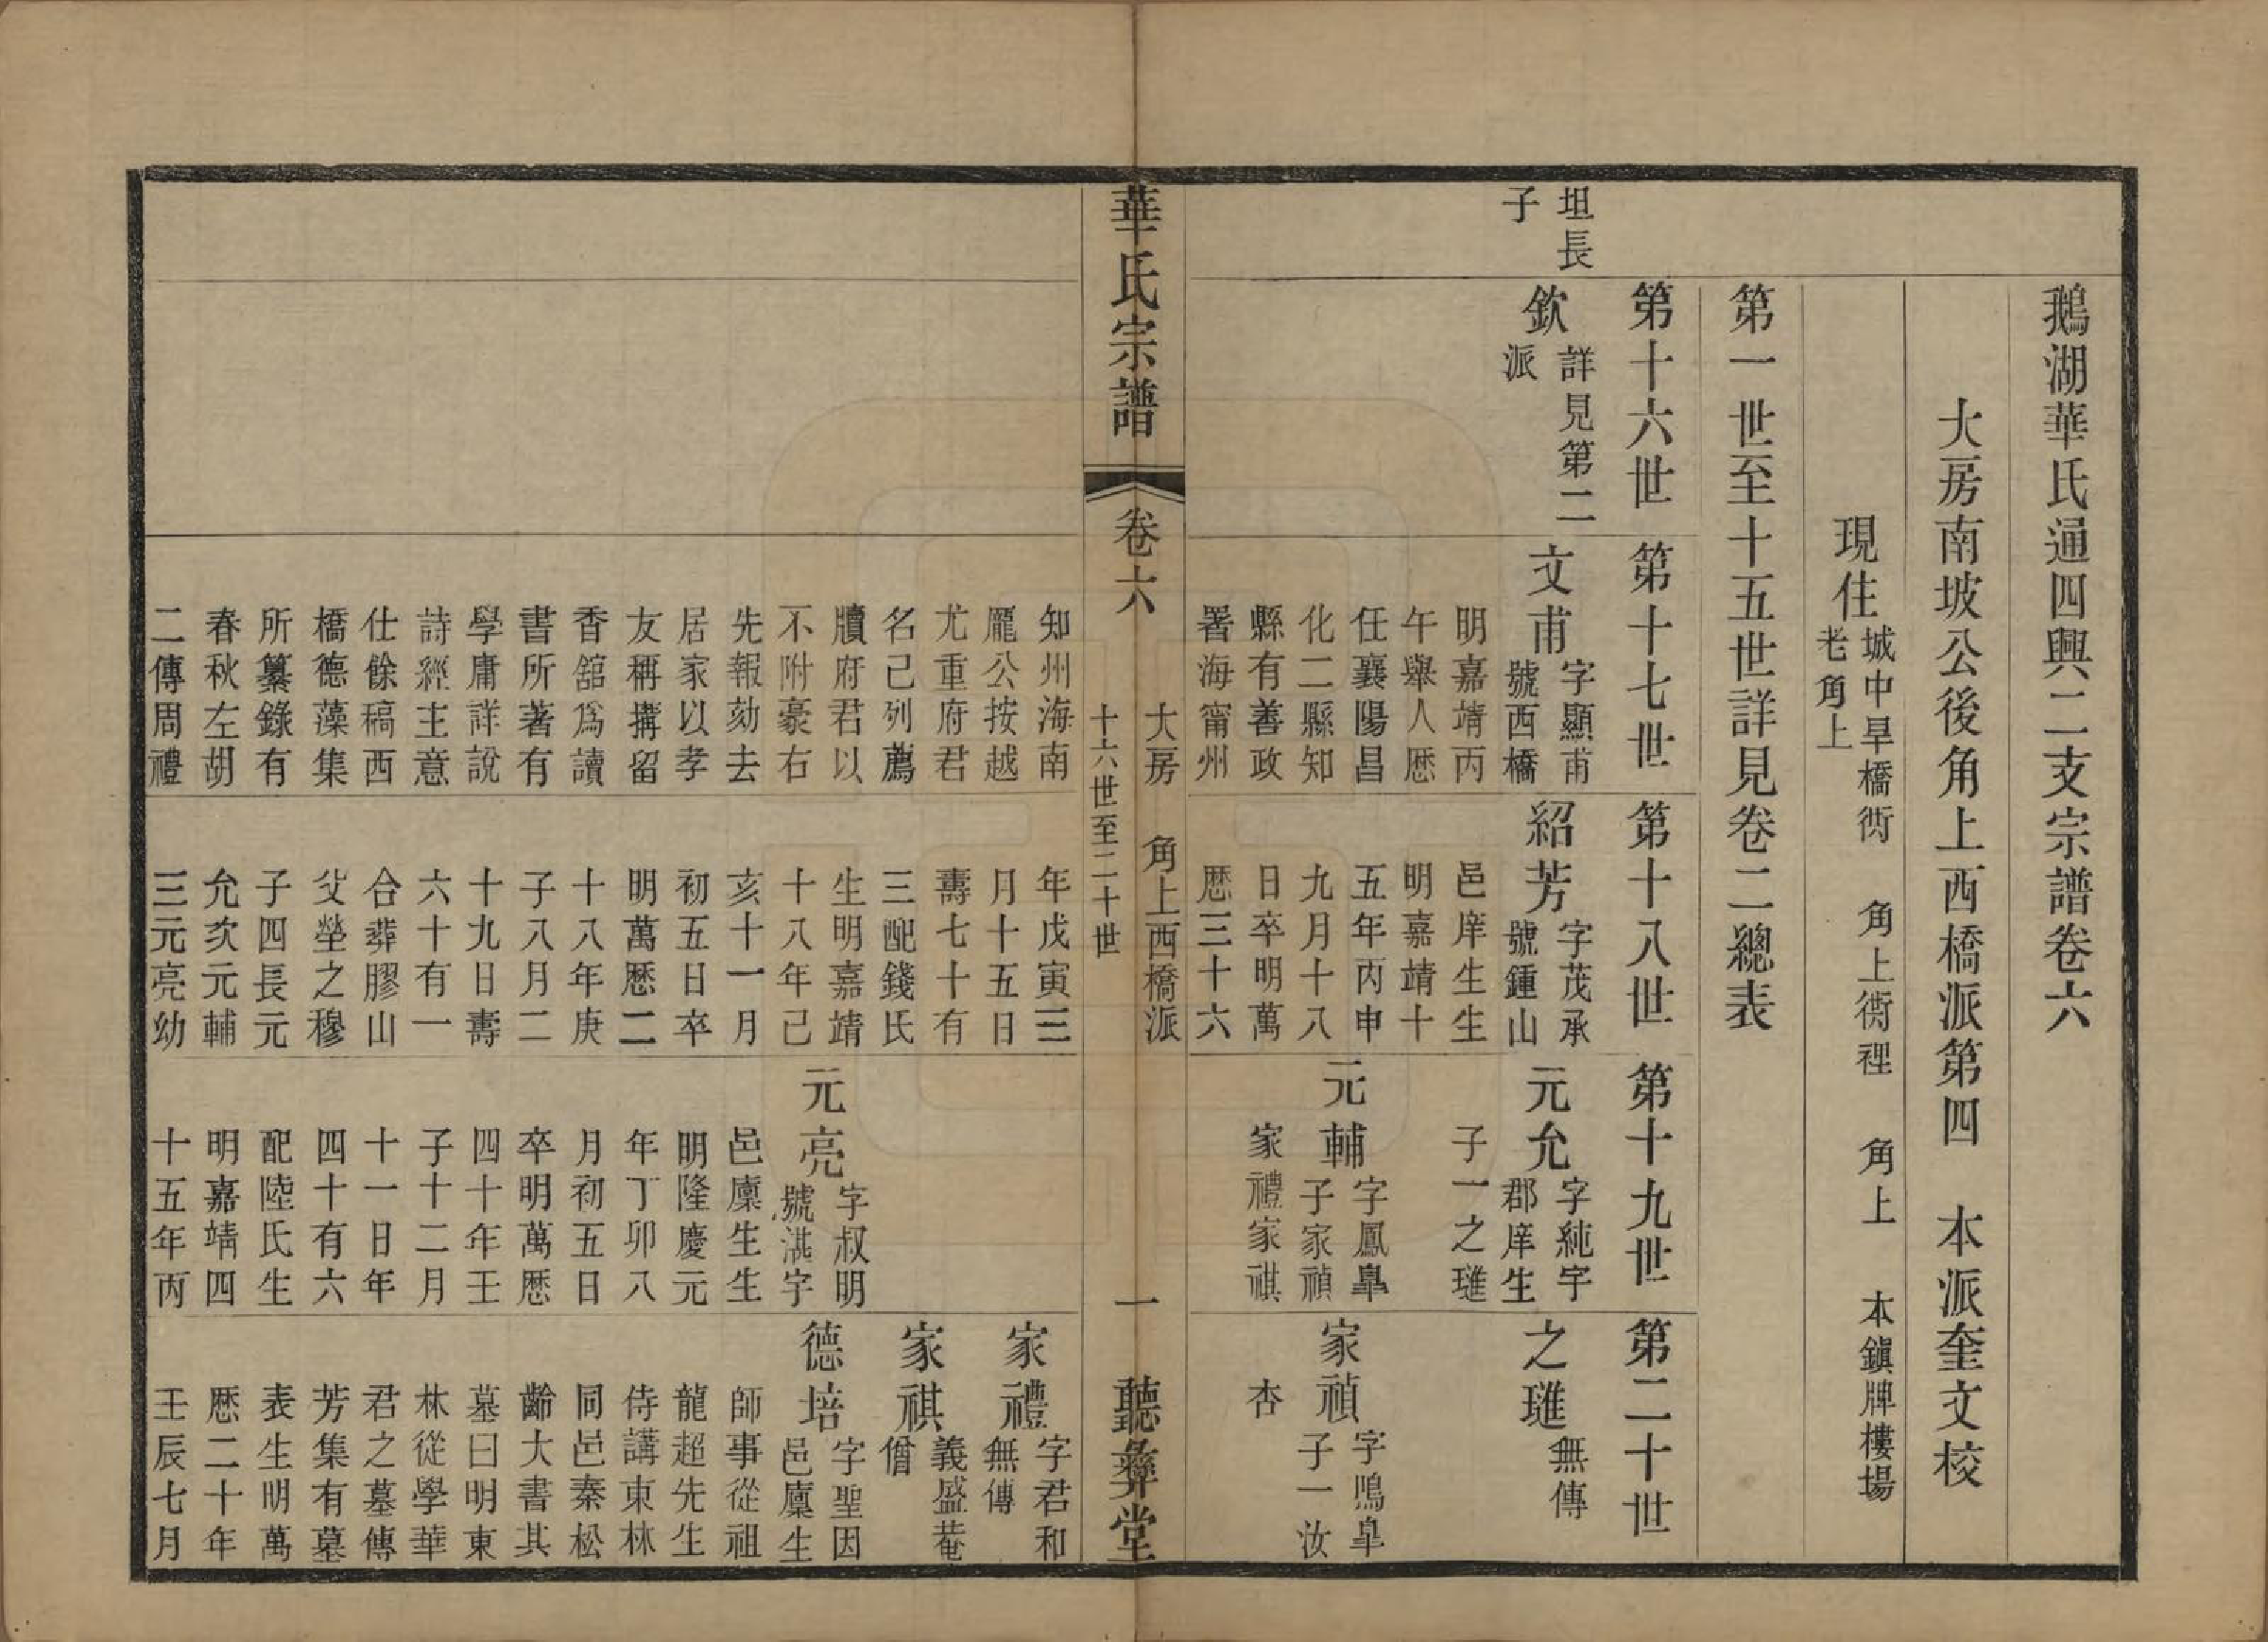 鵝湖華氏通四興二支宗譜卷六
大房南坡公後角上西橋派第四　本派奎文校
現住
城中旱橋衖　角上衖裡　角上　本鎭牌樓場
老角上
第一世至十五世詳見卷二總表
第十六世
第十七世
第十八世
第十九世
第二十世
坦長
子
欽
詳見第二
派
文甫
字顯甫
號西橋
明嘉靖丙
午舉人歷
任襄陽昌
化二縣知
縣有善政
署海甯州
知州海南
龎公按越
尤重府君
名已列薦
牘府君以
不附豪右
先報劾去
居家以孝
友稱搆留
香舘爲讀
書所著有
學庸詳說
詩經主意
仕餘稿西
橋德藻集
所纂錄有
春秋左胡
二傳周禮
紹芳
字茂承
號鍾山
邑庠生生
明嘉靖十
五年丙申
九月十八
日卒明萬
歷三十六
年戊寅三
月十五日
壽七十有
三配錢氏
生明嘉靖
十八年己
亥十一月
初五日卒
明萬歷二
十八年庚
子八月二
十九日壽
六十有一
合葬膠山
父塋之穆
子四長元
允次元輔
三元亮幼
元允
字純宇
郡庠生
子一之璡
元輔
字鳳臯
子家禎
家禮家祺
元亮
字叔明
號淇字
邑廩生生
明隆慶元
年丁卯八
月初五日
卒明萬歷
四十年壬
子十二月
十一日年
四十有六
配陸氏生
明嘉靖四
十五年丙
之璡
無傳
家禎
字鳴臯
子一汝
杏
家禮
字君和
無傳
家祺
義盛菴
僧
德培
字聖因
邑廩生
師事從祖
龍超先生
侍講東林
同邑秦松
齡大書其
墓曰明東
林從學華
君之墓傳
芳集有墓
表生明萬
歷二十年
壬辰七月
華氏宗譜
卷六
大房　角上西橋派
十六世至二十世
一
聽彝堂